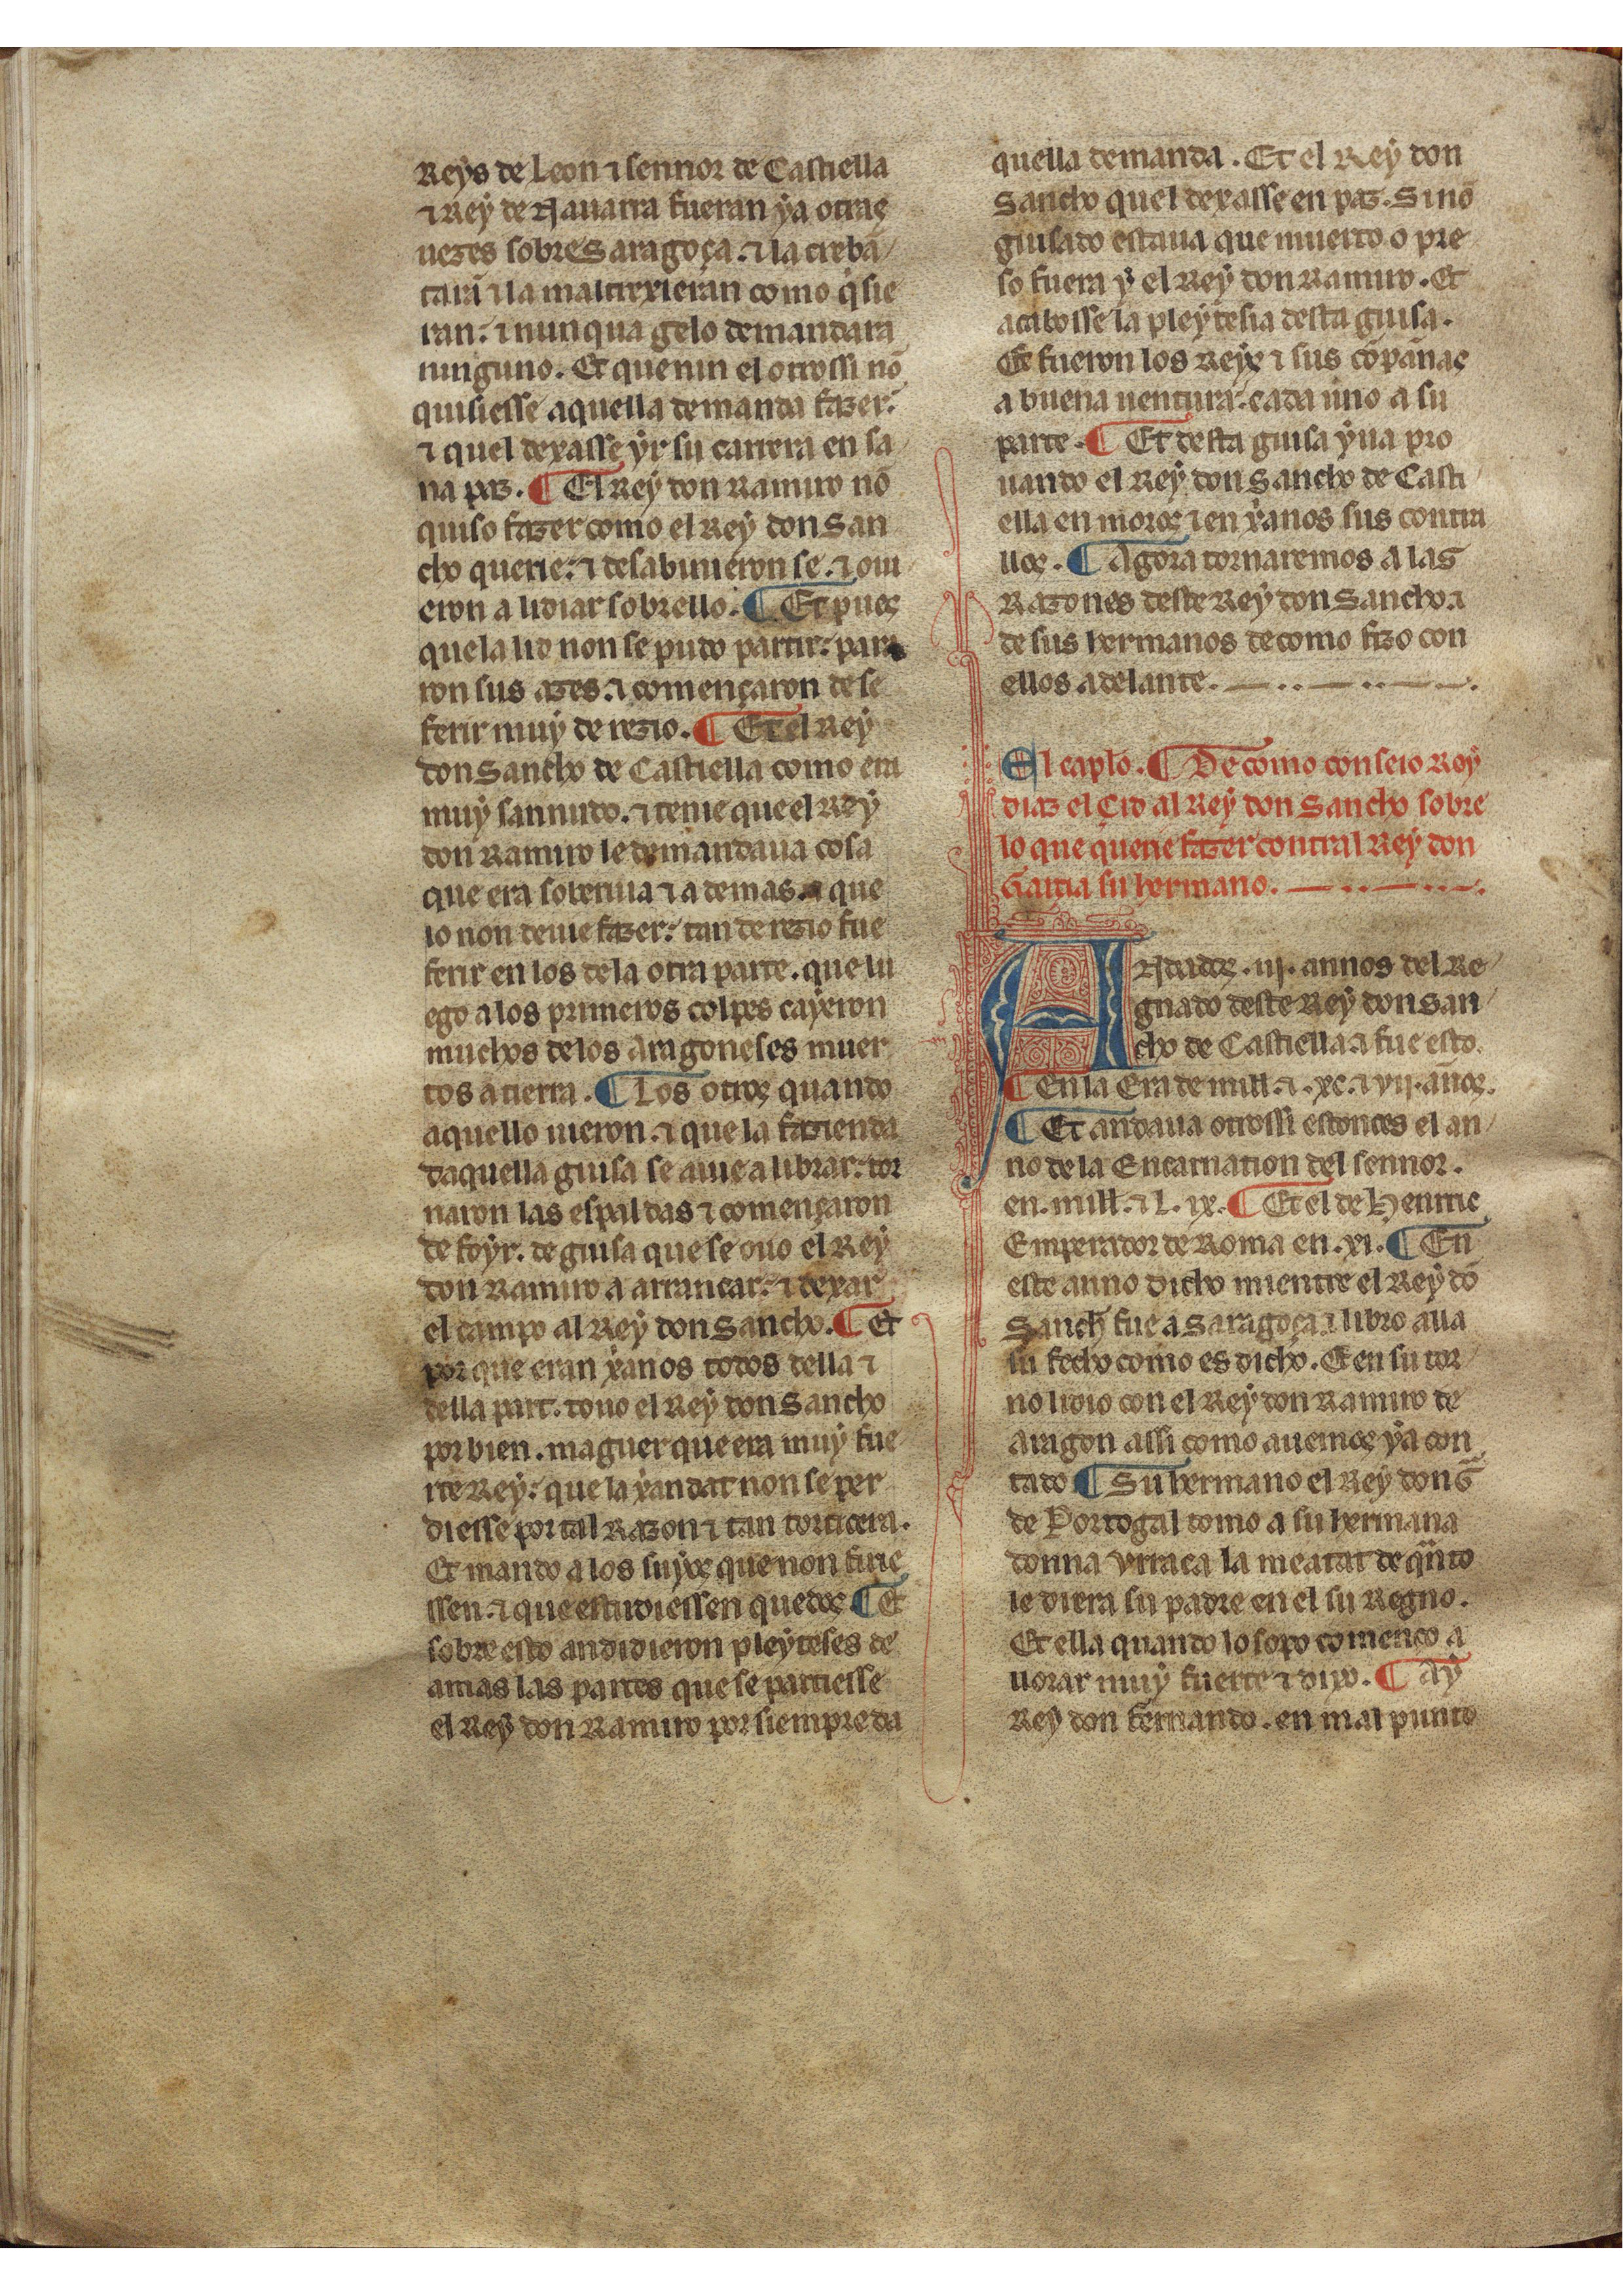 Reys de Leon ⁊ sennor de Castiella
⁊ Rey de Nauarra fueran ya otras
uezes sobre Saragoça. ⁊ la creban
tarã ⁊ la maltrexieran como q̇sie
ran. ⁊ nunqua gelo demandara
ninguno. Et quenin el otrossi nõ
quisiesse aquella demanda fazer.
⁊ quel dexasse yr su carrera en sa
na paz. ¶ El Rey don Ramiro nõ
quiso fazer como el Rey don San
cho querie. ⁊ desabinieron se. ⁊ oui
eron a lidiar sobrello. ¶ Et pues
que la lid non se pudo partir. para
ron sus azes. ⁊ començaron de se
ferir muy de rezio. ¶ Et el Rey
don Sancho de Castiella como era
muy sannudo. ⁊ tenie que el Rey
don Ramiro le demandaua cosa
que era soberuia ⁊ a demas. que
lo non deuie fazer. tan de rezio fue
ferir en los de la otra parte. que lu
ego a los primeros colpes cayeron
muchos de los Aragoneses muer
tos a tierra. ¶ Los otros quando
aquello uieron. ⁊ que la fazienda
daquella guisa se auie a librar. tor
naron las espaldas ⁊ començaron
de foyr. de guisa que se ouo el Rey
don Ramiro a arrancar. ⁊ dexar
el campo al Rey don Sancho. ¶ Et
por que eran x̃anos todos della ⁊
della part. touo el Rey don Sancho
por bien. maguer que era muy fue
rte Rey. que la x̃andat non se per
diesse por tal Razon ⁊ tan torticera.
Et mando a los suyos que non firie
ssen. ⁊ que estudiessen quedos ¶ Et
sobre esto andidieron pleyteses de
amas las partes que se partiesse
el Rey don Ramiro por siempre da
quella demanda. Et el Rey don
Sancho quel dexasse en paz. Si nõ
guisado estaua que muerto o pre
so fuera y el Rey don Ramiro. Et
acabosse la pleytesia desta guisa.
Et fueron los Reyes ⁊ sus cõpãnas
a buena uentura. cada uno a su
parte. ¶ Et desta guisa yua pro
uando el Rey don Sancho de Casti
ella en moros ⁊ en x̃anos sus contra
llos. ¶ Agora tornaremos a las
Razones deste Rey don Sancho. ⁊
de sus hermanos de como fizo con
ellos adelante.
El capl̃o. ¶ De como conseio Roy
diaz el Çid al Rey don Sancho sobre
lo que querie fazer contral Rey don
Garcia su hermano.
ANdados .iij. annos del Re
gnado deste Rey don San
cho de Castiella. ⁊ fue esto.
¶ En la Era de mill. ⁊ .xc. ⁊ vij. ãnos.
¶ Et andaua otrossi estonces el an
no de la Encarnation del sennor.
en. mill. ⁊ L. ix. ¶ Et el de Henrric
Emperador de Roma en .xi. ¶ En
este anno dicho mientre el Rey dõ
Sanch fue a Saragoça. ⁊ libro alla
su fecho como es dicho. E en su tor
no lidio con el Rey don Ramiro de
Aragon assi como auemos ya con
tado ¶ Su hermano el Rey don G̃
de Portogal tomo a su hermana
donna Vrraca la meatat de quãto
le diera su padre en el su Regno.
Et ella quando lo sopo començo a
llorar muy fuerte ⁊ dixo. ¶ Ay
Rey don fernando. en mal punto